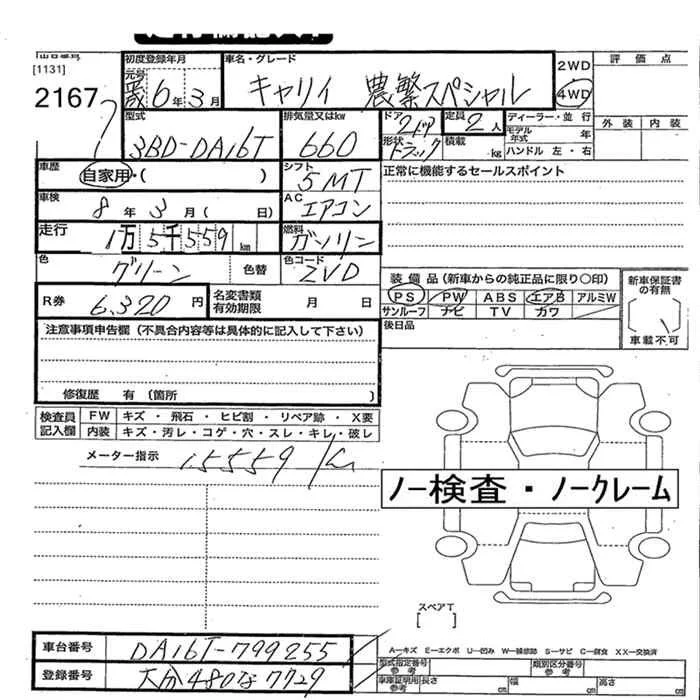 [1131]
2167
初度登録年月
元号
6年 3月
車名・グレード
キャリィ 農繁スペシャル
2WD
4WD
評価点
外装 内装
型式
3BD-DA16T
排気量又はkw
660
ドア
2ドア
形状
トラック
定員
2人
積載
kg
ディーラー・並行
モデル年式 年
ハンドル 左・右
車歴
自家用・( )
シフト
5MT
正常に機能するセールスポイント
車検
8年 3月( 日)
AC
エアコン
走行
1万5千559km
燃料
ガソリン
色
グリーン
色替
色コード
ZVD
装備品(新車からの純正品に限り○印)
PS PW ABS エアB アルミW
サンルーフ ナビ TV カワ
新車保証書の有無
[ ]
車載不可
R券
6,320円
名変書類有効期限
月 日
後日品
注意事項申告欄(不具合内容等は具体的に記入して下さい)
修復歴 有(箇所 )
検査員記入欄
FW キズ・飛石・ヒビ割・リペア跡・X要
内装 キズ・汚レ・コゲ・穴・スレ・キレ・破レ
メーター指示
15559 km
ノー検査・ノークレーム
スペアT
[ ]
A―キズ E―エクボ U―凹み W―補修跡 S―サビ C―腐食 XX―交換済
車台番号
DA16T-799255
登録番号
大分480な7729
型式指定番号
参考
類別区分番号
参考
車庫証明用
参考
長さ cm
幅 cm
高さ cm